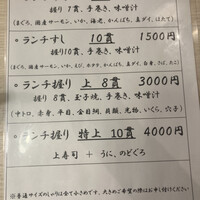 握り7貫、手巻き、味噌汁
(まぐろ、国産サーモン、いか、海老、かんぱち、真ダイ、ほたて)
◦ランチすし 10貫 1500円
握り10貫、手巻き、味噌汁
(まぐろ、国産サーモン、いか、えび、ホタテ、かんぱち、真ダイ、
◦ランチ握り 上 8貫 3000円
握り8貫、玉子焼、手巻き、味噌汁
(中トロ、赤身、平目、金目鯛、貝類、光物、いくら、穴子)
◦ランチ握り 特上 10貫 4000円
上寿司 + うに、のどぐろ